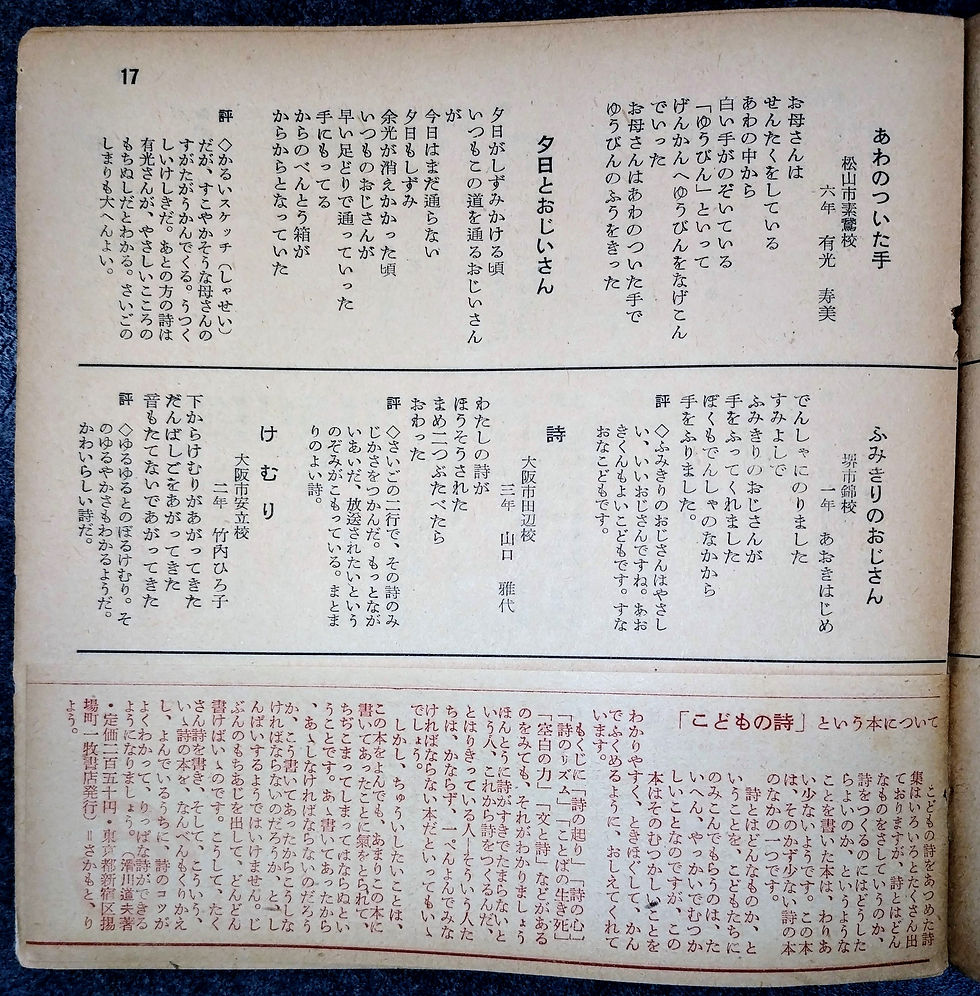 17
あわのついた手
松山市素鵞校
六年　有光　寿美
お母さんは
せんたくをしている
あわの中から
白い手がのぞいている
「ゆうびん」といって
げんかんへゆうびんをなげこん
でいった
お母さんはあわのついた手で
ゆうびんのふうをきった
夕日とおじいさん
夕日がしずみかける頃
いつもこの道を通るおじいさん
が
今日はまだ通らない
夕日もしずみ
余光が消えかかった頃
いつものおじさんが
早い足どりで通っていった
手にもってる
からのべんとう箱が
からからとなっていた
評　◇かるいスケッチ（しゃせい）
だが、すこやかそうな母さんの
すがたがうかんでくる。うつく
しいけしきだ。あとの方の詩は
有光さんが、やさしいこころの
もちぬしだとわかる。さいごの
しまりも大へんよい。
ふみきりのおじさん
堺市錦校
一年　あおきはじめ
でんしゃにのりました
すみよしで
ふみきりのおじさんが
手をふってくれました
ぼくもでんしゃのなかから
手をふりました。
評　◇ふみきりのおじさんはやさし
い、いいおじさんですね。あお
きくんもよいこどもです。すな
おなこどもです。
詩
大阪市田辺校
三年　山口　雅代
わたしの詩が
ほうそうされた
まめ二つぶたべたら
おわった
評　◇さいごの二行で、その詩のみ
じかさをつかんだ。もっとなが
いあいだ、放送されたいという
のぞみがこもっている。まとま
りのよい詩。
けむり
大阪市安立校
二年　竹内ひろ子
下からけむりがあがってきた
だんばしごをあがってきた
音もたてないであがってきた
評　◇ゆるゆるとのぼるけむり。そ
のゆるやかさもわかるようだ。
かわいらしい詩だ。
「こどもの詩」という本について
こどもの詩をあつめた詩
集はいろいろとたくさん出
ておりますが、詩とはどん
なものをさしていうのか、
詩をつくるのにはどうした
らよいのか、というような
ことを書いた本は、わりあ
い少ないようです。この本
は、そのかず少ない詩の本
のなかの一つです。
詩とはどんなものか、と
いうことを、こどもたちに
のみこんでもらうのは、た
いへん、やっかいでむつか
しいことなのですが、この
本はそのむつかしいことを
わかりやすく、ときほぐして、かん
でふくめるように、おしえてくれて
います。
もくじに「詩の起り」「詩の心」
「詩のリズム」「ことばの生き死」
「空白の力」「文と詩」などがある
のをみても、それがわかりましょう
ほんとうに詩がすきでたまらない、と
いう人、これから詩をつくるんだ、
とはりきっている人―そういう人た
ちは、かならず、一ぺんよんでみな
ければならない本だといってもいゝ
でしょう。
しかし、ちゅういしたいことは、
この本をよんでも、あまりこの本に
書いてあったことに氣をとられて、
ちぢこまってしまってはならぬとい
うことです。あゝ書いてあったから
、あゝしなければならないのだろう
か、こう書いてあったからこうしな
ければならないのだろうか、と、し
んぱいするようではいけません。じ
ぶんのもちあじを出して、どんどん
書けばいゝのです。こうして、たく
さん詩を書き、そして、こういう、
いゝ詩の本を、なんべんもくりかえ
し、よんでいるうちに、詩のコツが
よくわかって、りっぱな詩ができる
ようになりましょう。（滑川道夫著
・定価二百五十円・東京都新宿区揚
場町一牧書店発行）＝さかもと、り
よう。